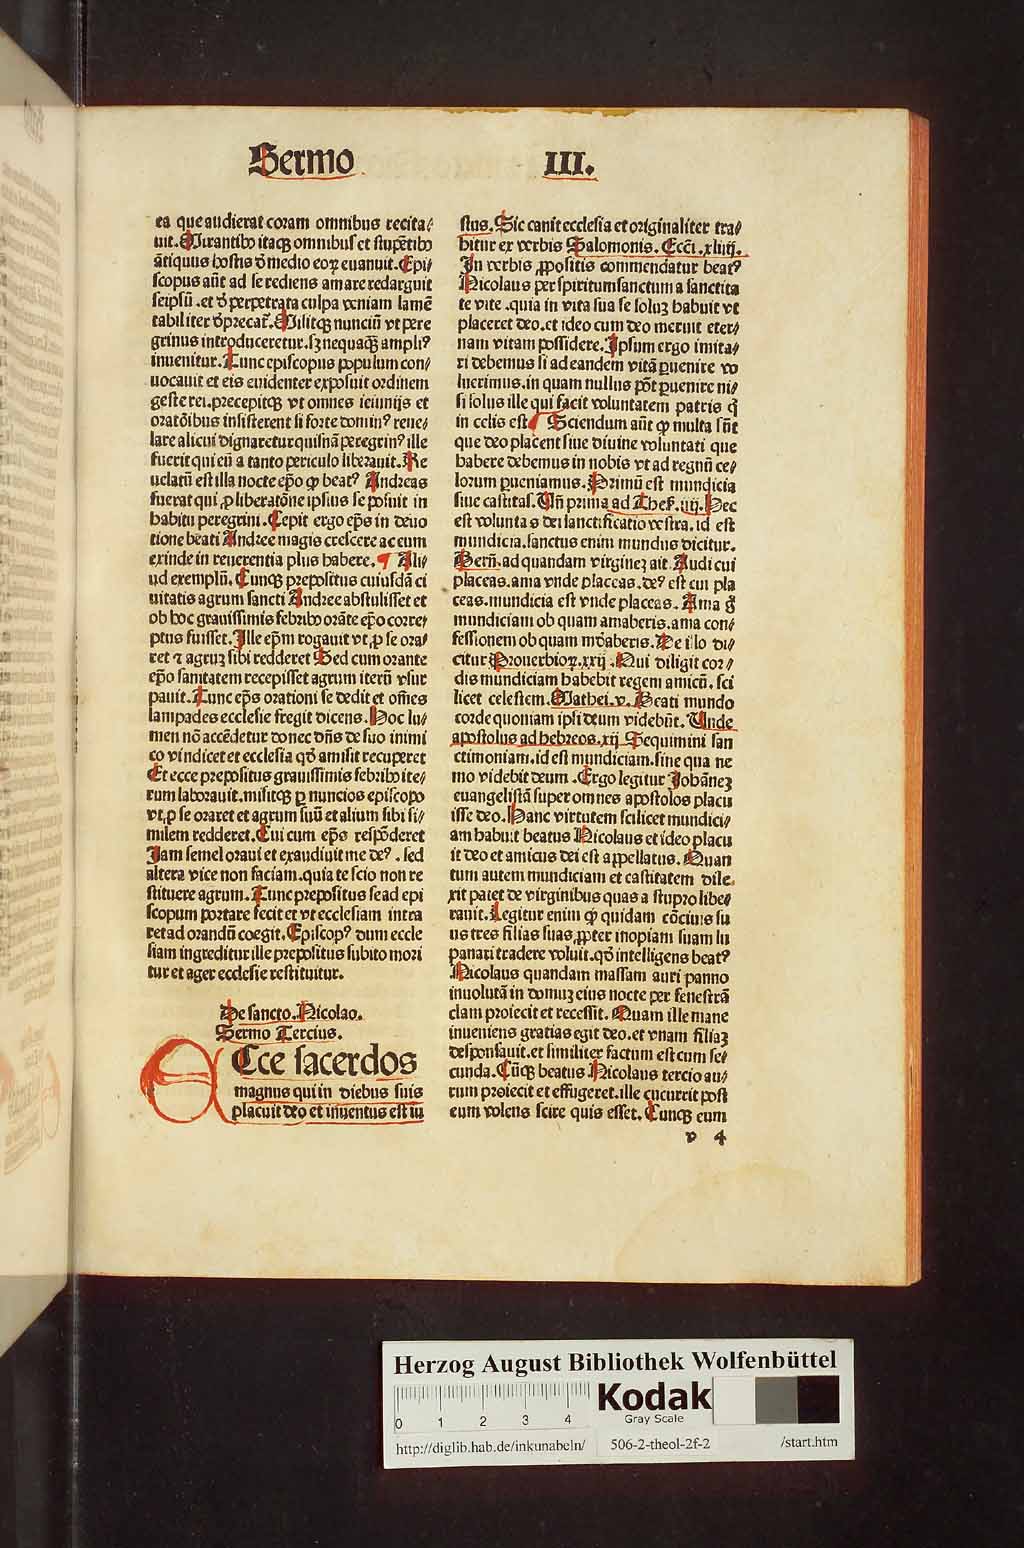 Sermo III.
ea que audierat coram omnibus recita⸗
uit. Mirantibꝰ itaqꝫ omnibus et stupētibꝰ
ātiquus hostis d̄ medio eoꝝ euanuit. Epi⸗
scopus aūt ad se rediens amare redarguit
seipsū. et d̄ perpetrata culpa veniam lamē
tabiliter d̄precat̄. Misitqꝫ nunciū vt pere
grinus introduceretur. sꝫ nequaqꝫ ampliꝰ
inuenitur. Tunc episcopus populum con⸗
uocauit et eis euidenter exposuit ordinem
geste rei. precepitqꝫ vt omnes ieiunijs et
oratōibus insisterent si forte dominꝰ reue⸗
lare alicui dignaretur quisnā peregrinꝰ ille
fuerit qui eū a tanto periculo liberauit. Re
uelatū est illa nocte ep̄o ꝙ beatꝰ Andreas
fuerat qui ꝓ liberatōne ipsius se posuit in
habitu peregrini. Cepit ergo ep̄s in deuo
tione beati Andree magis crescere ac eum
exinde in reuerentia plus habere. ¶ Ali⸗
ud exemplū. Cunqꝫ prepositus cuiusdā ci
uitatis agrum sancti Andree abstulisset et
ob hoc grauissimis febribꝰ orāte ep̄o corre⸗
ptus fuisset. Ille ep̄m rogauit vt ꝓ se ora⸗
ret ⁊ agruꝫ sibi redderet Sed cum orante
ep̄o sanitatem recepisset agrum iterū vsur
pauit. Tunc ep̄s orationi se dedit et om̄es
lampades ecclesie fregit dicens. Hoc lu⸗
men nō accēdetur donec dn̄s de suo inimi
co vindicet et ecclesia qd̄ amisit recuperet
Et ecce prepositus grauissimis febribꝰ ite⸗
rum laborauit. misitqꝫ ꝑ nuncios episcopo
vt ꝓ se oraret et agrum suū et alium sibi si⸗
milem redderet. Cui cum ep̄s respōderet
Jam semel oraui et exaudiuit me deꝰ. sed
altera vice non faciam. quia te scio non re
stituere agrum. Tunc prepositus se ad epi
scopum portare fecit et vt ecclesiam intra
ret ad orandū coegit. Episcopꝰ dum eccle
siam ingreditur ille prepositus subito mori
tur et ager ecclesie restituitur.
De sancto. Nicolao.
Sermo Tercius.
ECce sacerdos
magnus qui in diebus suis
placuit deo et inuentus est iu
stus. Sic canit ecclesia et originaliter tra⸗
hitur ex verbis Salomonis. Ecc̄i. xliiij.
In verbis ꝓpositis commendatur beatꝰ
Nicolaus per spiritum sanctum a sanctita
te vite. quia in vita sua se soluꝫ habuit vt
placeret deo. et ideo cum deo meruit eter⸗
nam vitam possidere. Ipsum ergo imita⸗
ri debemus si ad eandem vitā ꝑuenire vo
luerimus. in quam nullus pōt ꝑuenire ni⸗
si solus ille qui facit voluntatem patris q̄
in celis est ¶ Sciendum aūt ꝙ multa sūt
que deo placent siue diuine voluntati que
habere debemus in nobis vt ad regnū ce⸗
lorum ꝑueniamus. Primū est mundicia
siue castitas. Vn̄ prima ad Thes̄. iiij. Hec
est voluntas dei sanctificatio vestra. id est
mundicia. sanctus enim mundus dicitur.
Bern̄. ad quandam virgineꝫ ait. Audi cui
placeas. ama vnde placeas. deꝰ est cui pla
ceas. mundicia est vnde placeas. Ama g̊
mundiciam ob quam amaberis. ama con⸗
fessionem ob quam mūdaberis. De illo di⸗
citur Prouerbioꝝ. xxij. Qui diligit cor⸗
dis mundiciam habebit regem amicū. sci
licet celestem. Mathei. v. Beati mundo
corde quoniam ipsi deum videbūt. Unde
apostolus ad hebreos. xij Sequimini san
ctimoniam. id est mundiciam. sine qua ne
mo videbit deum. Ergo legitur Johāneꝫ
euangelistā super omnes apostolos placu
isse deo. Hanc virtutem scilicet mundici⸗
am habuit beatus Nicolaus et ideo placu
it deo et amicus dei est appellatus. Quan
tum autem mundiciam et castitatem dile⸗
xit patet de virginibus quas a stupro libe⸗
rauit. Legitur enim ꝙ quidam cōciuis su
us tres filias suas ꝓpter inopiam suam lu
panari tradere voluit. qd̄ intelligens beatꝰ
Nicolaus quandam massam auri panno
inuolutā in domuꝫ eius nocte per fenestrā
clam proiecit et recessit. Quam ille mane
inueniens gratias egit deo. et vnam filiaꝫ
desponsauit. et similiter factum est cum se⸗
cunda. Cūqꝫ beatus Nicolaus tercio au⸗
rum proiecit et effugeret. ille cucurrit post
eum volens scire quis esset. Cunqꝫ eum
v 4
Herzog August Bibliothek Wolfenbüttel
0 1 2 3 4
Kodak
Gray Scale
http://diglib.hab.de/inkunabeln/ 506-2-theol-2f-2 /start.htm